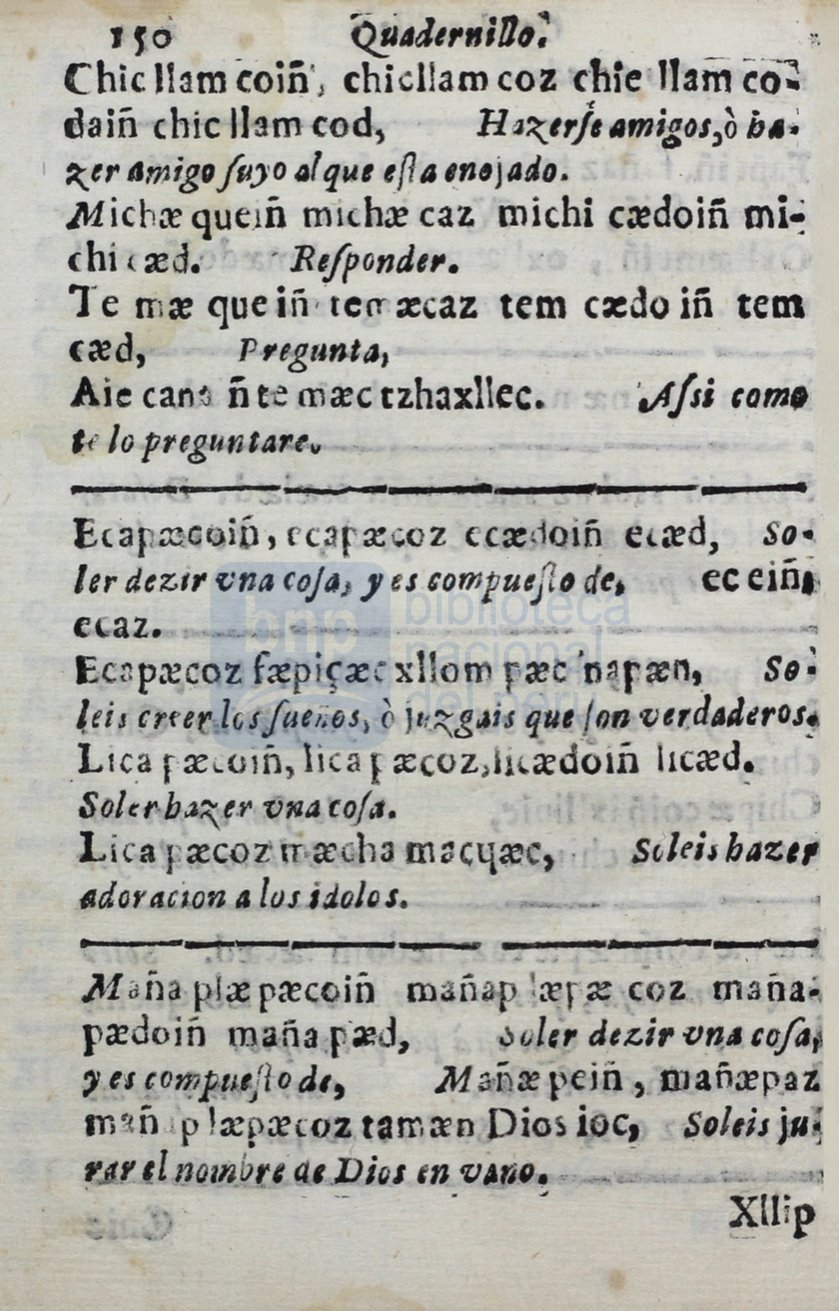 150 Quadernillo.
Chic llam coiñ, chicllam coz chic llam co-
daiñ chic llam cod, Hazerſe amigos, ò ha-
zer amigo ſuyo al que eſta enojado.
Michæ queiñ michæ caz michi cædoiñ mi-
chi cæd. Reſponder.
Te mæ que iñ temæcaz tem cædo iñ tem
cæd, Pregunta,
Aie cana ñ te mæc tzhaxllec. Aſsi como
te lo preguntare.
Ecapæcoiñ, ecapæcoz ecædoiñ ecæd, So-
ler dezir vna coſa, y es compueſto de, ec eiñ,
ecaz.
Ecapæcoz fæpiçæc xllom pæc napæn, So-
leis creer los ſueños, ò juzgais que ſon verdaderos.
Lica pæcoiñ, lica pæcoz, licædoiñ licæd.
Soler hazer vna coſa.
Lica pæcoz mæcha macqæc, Soleis hazer
adoracion a los idolos.
Maña plæ pæcoiñ mañap læpæ coz maña-
pædoiñ maña pæd, Soler dezir vna coſa,
y es compueſto de, Mañæ peiñ, mañæpaz
mañ p læpæcoz tamæn Dios ioc, Soleis ju-
rar el nombre de Dios en vano.
Xllip
bnp biblioteca
nacional
del perú